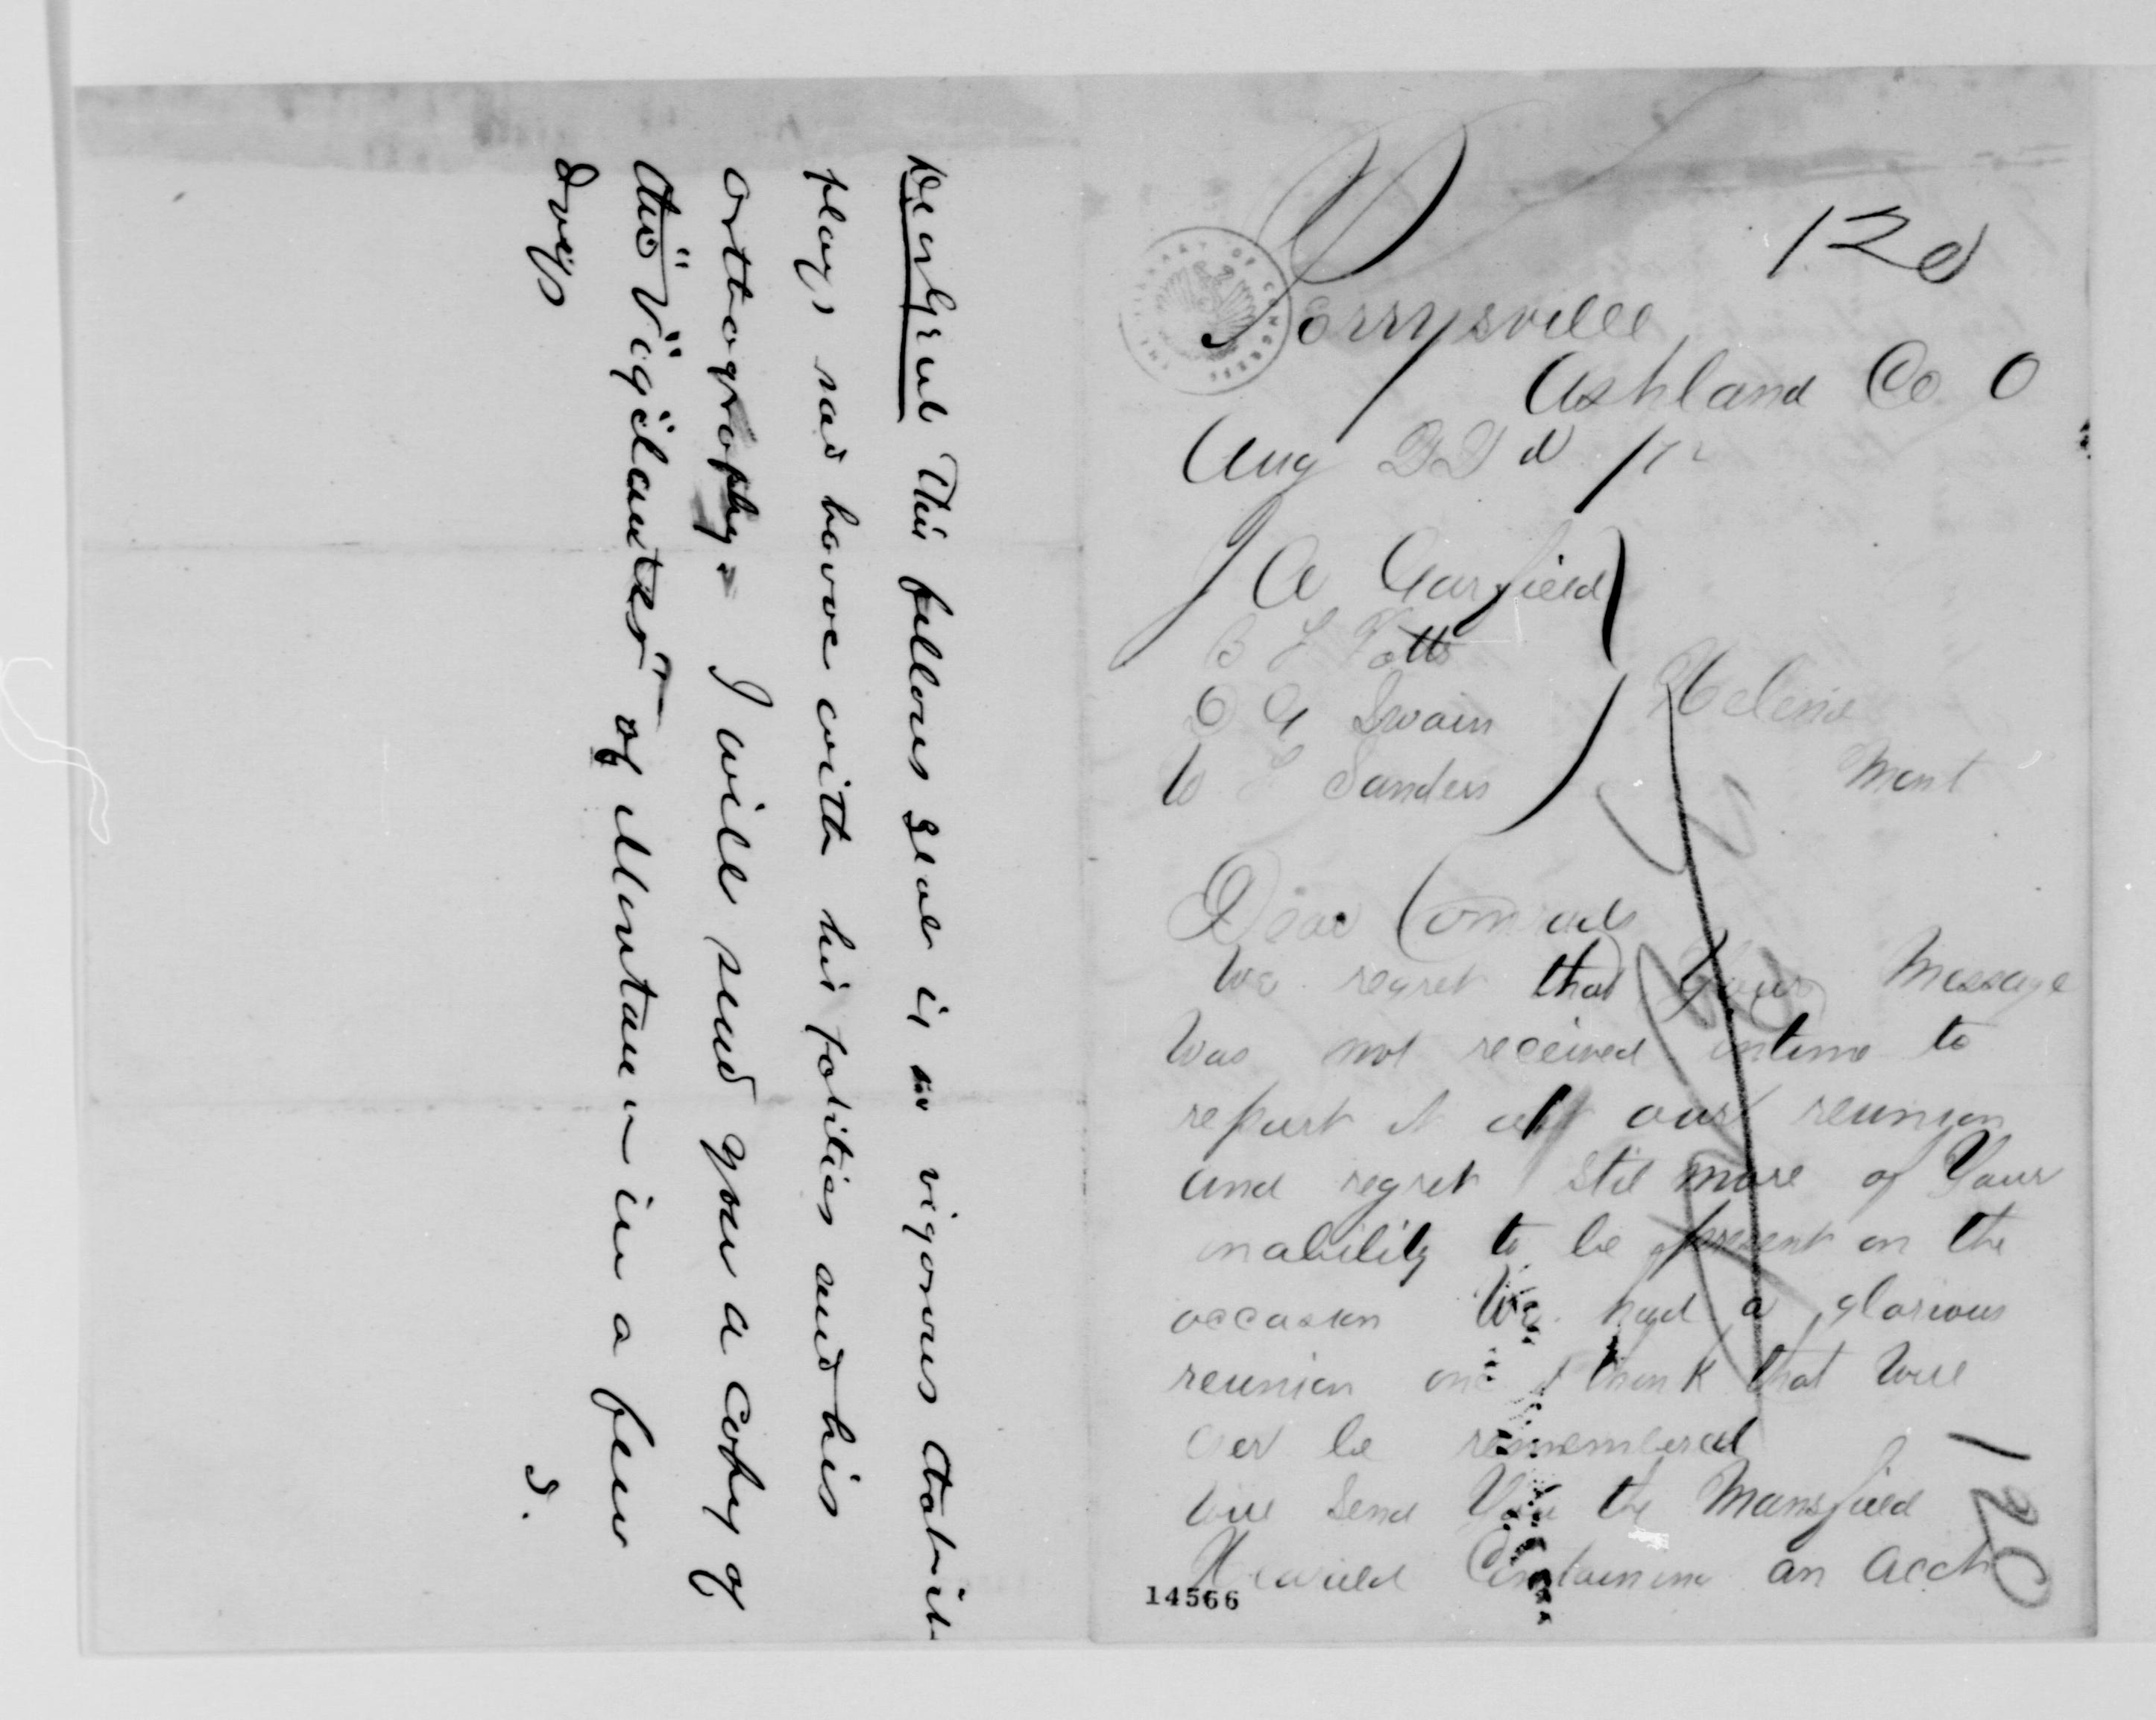 120
Perrysville
Ashland Co O
Aug 22d /72
J A Garfield
B F Potts
D G Swain
W F Sanders
Helena
Mont
Dear Comrads
We regret that Your Message
Was not received intime to
repurt it att our reunion
and regret Stil more of Your
inability to be present on the
occasion We had a glorious
reunion one I think that Will
ever be remembered
Will Send You the Mansfield
Hearild Containing an acct
120
14566
Dear Genl This fellows zeal is in vigorous
plays sad havoc with his politics and his
orthography. I will send you a copy of
the "Vigilantes" of Montana in a few
days
S.
THE LIBRARY OF CONGRESS